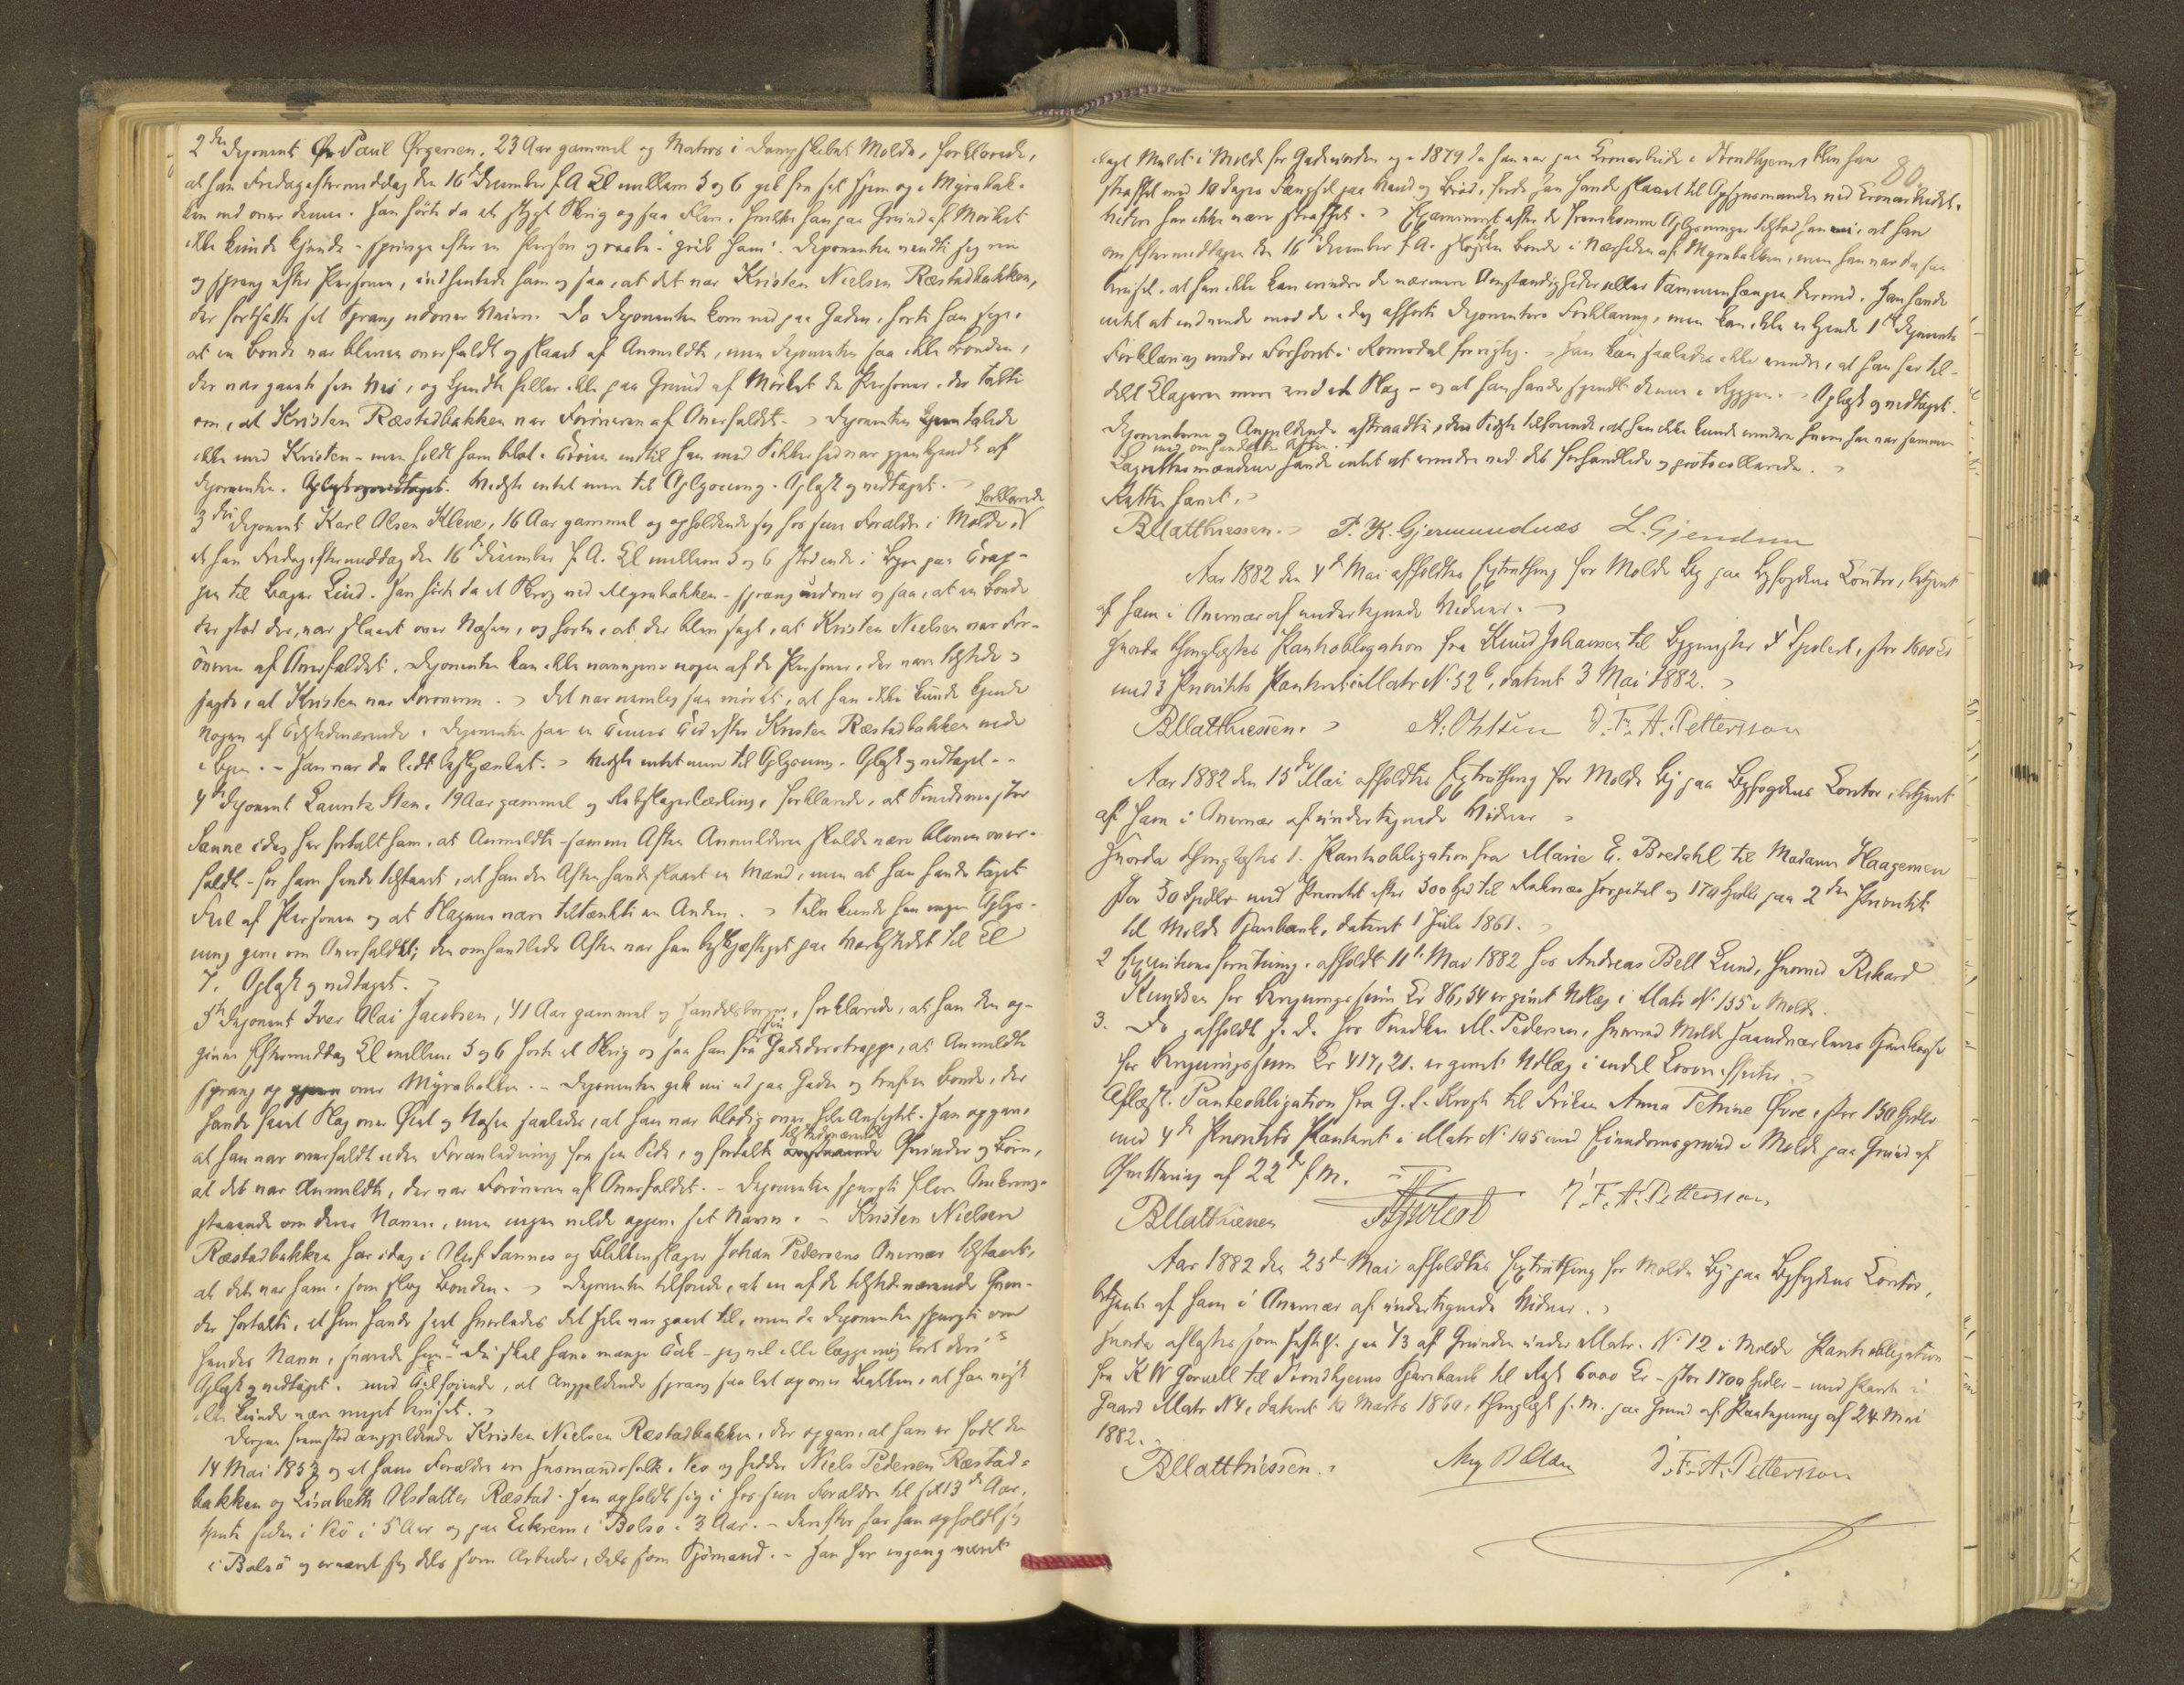 2den Deponent Paul Ørgersen, 23 Aar gammel og Matros i Dampskibet Molde, forklarede,
at han Fredag eftermiddag den 16de Decmber f. A. Kl mellem 5 og 6 gik fra sit Hjem og i Myrabak-
ken ned over denne. Han hørte da et stygt Skrig og saa Flere, hvilke han paa Grund af Mørket
ikke kunde kjende – springe efter en Person og raabe "grib ham". Deponenten vendte sig om
og sprang efter Personen, indhentede ham og saa, at det var Kristen Nielsen Ræstadbakken,
der fortsatte sit Sprang udover Veien. Da Deponenten kom ned paa Gaden, hørte han sige,
at en Bonde var bleven overfaldt og slaaet af Anmeldte, men Deponenten saa ikke Bonden,
der var gaaet sin Vei, og kjendte heller ikke paa Grund af Mørket de Personer, der talte
om, at Kristen Ræstadbakken var Forøveren af Overfaldet. Deponenten talede
ikke med Kristen – men holdt ham blot i Trøien indtil han med Sikkerhed var gjenkjendt af
Deponenten. Oplæst og vedtaget. Vidste intet mere til Oplysning. Oplæst og vedtaget.
3die Deponent Karl Olsen Kleve, 16 Aar gammel og opholdende sig hos sine Forældre i Molde, forklarede
at han Fredag eftermiddag den 16de Decmber f. A. Kl mellem 5 og 6 stod inde i Byen paa Trap-
pen til Bager Lund. Han hørte da et Skrig ved Myrabakken – sprang udover og saa, at en Bonde
der stod der, var slaaet over Næsen, og hørte, at der blev sagt, at Kristen Nielsen var For-
øveren af Overfaldet. Deponenten kan ikke navngive nogen af de Personer, der vare tilstede og
sagde, at Kristen var Forøveren. Det var nemlig saa mørkt, at han ikke kunde kjende
Nogen af Tilstedeværende. Deponenten saa en Times Tid efter Kristen Ræstadbakken nede
i Byen. – Han var da lidt beskjænket. Vidste intet mere til Oplysning. Oplæst og vedtaget.
4de Deponent Lauritz Sten, 19 Aar gammel og Rebslagerlærling, forklarede, at Smedemester
Sanne idag har fortalt ham, at Anmeldte – samme Aften Anmelderen skulde være bleven over-
faldt – for ham havde tilstaaet, at han den Aften havde slaaet en Mand, men at han havde taget
Feil af Personen og at Slagene vare tiltænkte en Anden. Selv kunde han ingen Oplys-
ning give om Overfaldet; den omhandlede Aften var han beskjæftiget paa Værkstedet til Kl
7. Oplæst og vedtaget.
5te Deponent Iver Olai Jacobsen, 41 Aar gammel og Handelsborger, forklarede, at han den op-
givne Eftermiddag Kl mellem 5 og 6 hørte et Skrig og saa han fra sin Gadedørstrappe, at Anmeldte
sprang op over Myrabakken. – Deponenten gik ud paa Gaden og traf en Bonde, der
havde faaet Slag over Øiet og Næsen saaledes, at han var blodig over hele Ansigtet. Han opgav,
at han var overfaldt uden Foranledning fra sin Side, og fortalte tilstedeværende Qvinder og Børn,
at det var Anmeldte, der var Forøveren af Overfaldet. – Deponenten spurgte flere Omkring-
staaende om deres Navne, men ingen vilde opgive sit Navn. – Kristen Nielsen
Ræstadbakken har idag i Oluf Sannes og Blikkenslager Johan Pedersens Overvær tilstaaet,
at det var ham, som slog Bonden. Deponenten tilføiede, at en af de tilstedeværende Qvin-
der fortalte, at hun havde seet hvorledes det hele var gaaet til, men da Deponenten spurgte om
hendes Navn, svarede hun – "Du skal have mange Tak – jeg vil ikke lægge mig bort deri".
Oplæst og vedtaget med Tilføiende, at Angjeldende sprang saa let op over Bakken, at han vist
ikke kunde være meget beruset.
Derpaa fremstod angjeldende Kristen Nielsen Ræstadbakken, der opgav, at han er født den
14 Mai 1853 og at hans Forældre ere Husmandsfolk i Veø og hedder Niels Pedersen Ræstad-
bakken og Lisabeth Olsdatter Ræstad. Han opholdt sig hos sine Forældre til sit 13de Aar,
tjente siden i Veø i 5 Aar og paa Eikrem i Bolsø i 3 Aar. – Derefter har han opholdt sig
i Bolsø og ernæret sig dels som Arbeider, dels som Sjømand. – Han har engang været
80.
ilagt Mulct i Molde for Gadeuorden og i 1879 da han var paa Kronarbeide i Trondhjem, blev han
straffet med 10 Dages Fængsel paa Vand og Brød, fordi han havde slaaet til Opsynsmanden ved Kronarbeidet.
Siden har ikke været straffet. Examineret efter de fremkomne Oplysninger tilstod han, at han
om Eftermiddagen den 16de Decmber f. A. slog til en Bonde i Nærheden af Myrabakken, men han var da saa
beruset, at han ikke kan erindre de nærmere Omstændigheder eller Sammenhængen dermed. Han havde
intet at indvende mod de idag afhørte Deponenters Forklaring, men kan ikke erkjende 1ste Deponents
Forklaring under Forhøret i Romsdal for rigtig. Han kan saaledes ikke erindre, at han har til-
delt Klageren mere end et Slag – og at han havde spændt denne i Ryggen. Oplæst og vedtaget.
Deponenterne og Angjeldende aftraadte, den Sidste tilføiende, at han ikke kunde erindre hvem han var sammen
med omhandlede Aften.
Lagrettesmændene havde intet at erindre ved det forhandlede og protocollerede.
Retten hævet.
BMatthiessen. P. K. Gjermundnæs L. Gjendem
Aar 1882 den 4de Mai afholdtes Extrathing for Molde By paa Byfogdens Contor, betjent
af ham i Overvær af undertegnede Vidner.
Hvorda thinglæstes Panteobligation fra Knud Johansen til Bygmester Spolert, stor 1600 Kr
med 3 Prioritets Panteret i Matr N. 52b, dateret 3 Mai 1882.
BMatthiessen. A. Ohlsen J. F. A. Pettersson
Aar 1882 den 15de Mai afholdtes Extrathing for Molde By paa Byfogdens Contor, betjent
af ham i Overvær af undertegnede Vidner
Hvorda thinglæstes 1. Panteobligation fra Marie E. Bredahl til Madame Haagensen
stor 50 Spdlr med Prioritet efter 300 Spd til Reknæs Hospital og 170 Spdlr paa 2den Prioritet
til Molde Sparebank, dateret 1 Juli 1861.
2 Executionsforretning, afholdt 11te Mai 1882 hos Andreas Bell Lund, hvorved Rikard
Knudsen for Kr 86,54 er givet Udlæg i Matr N. 155 i Molde.
3. Do, afholdt s. D. hos Snedker M. Pedersen, hvorved Molde Haandværkeres Sparekasse
for Kr 417,21. er givet Udlæg i endel Løsøreeffecter.
Aflæst. Panteobligation fra G. S. Krogh til Frøken Anna Petrine Øvre, stor 150 Spdlr
med 4de Prioritets Panteret i Matr N. 195 med Eiendomsgrund i Molde paa Grund af
Qvittering af 22de f. M.
BMatthiessen J. F. A. Pettersson
Aar 1882 den 25de Mai afholdtes Extrathing for Molde By paa Byfogdens Contor,
betjent af ham i Overvær af undertegnede Vidner.
Hvorda aflæstes som paa 1/3 af Grunden under Matr. N. 12 i Molde Panteobligation
fra K W Gørvell til Trondhjems Sparebank til Rest 6000 Kr – stor 1700 Spdlr – med Pant i
Gaard Matr N 4, dateret 10 Marts 1860, thinglæst s. M. paa Grund af Paategning af 24 Mai
1882.
BMatthiessen. J. F. A. Pettersson